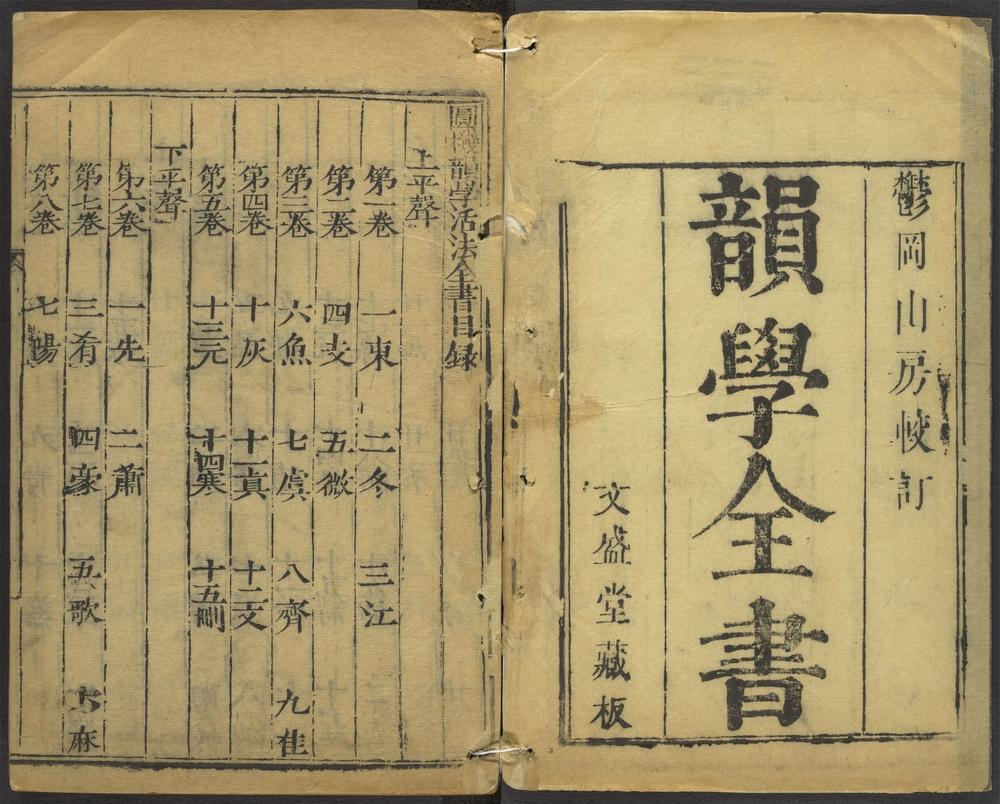 鬱岡山房較訂
韻學全書
文盛堂藏板
圓機韻學活法全書目錄
上平聲
第一卷 一東 二冬 三江
第二卷 四支 五微
第三卷 六魚 七虞 八齊 九佳
第四卷 十灰 十一真 十二文
第五卷 十三元 十四寒 十五刪
下平聲
第六卷 一先 二蕭
第七卷 三肴 四豪 五歌 六麻
第八卷 七陽